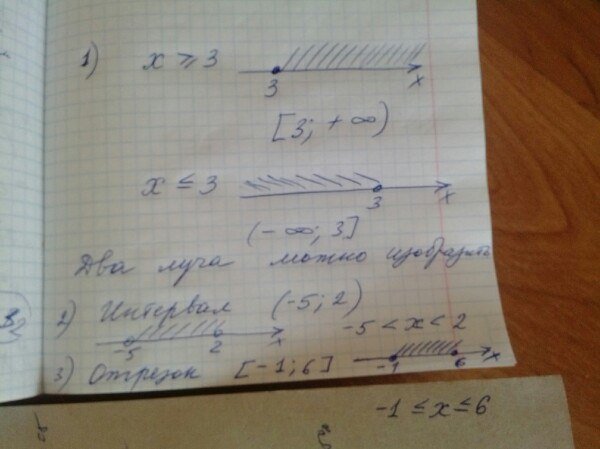 1) x ⩾ 3
3 x
[3; +∞)
x ≤ 3
3 x
(-∞; 3]
Два луча можно изобразить
2) Интервал (-5; 2)
-5 2 x
-5 < x < 2
3) Отрезок [-1; 6]
-1 6 x
-1 ≤ x ≤ 6